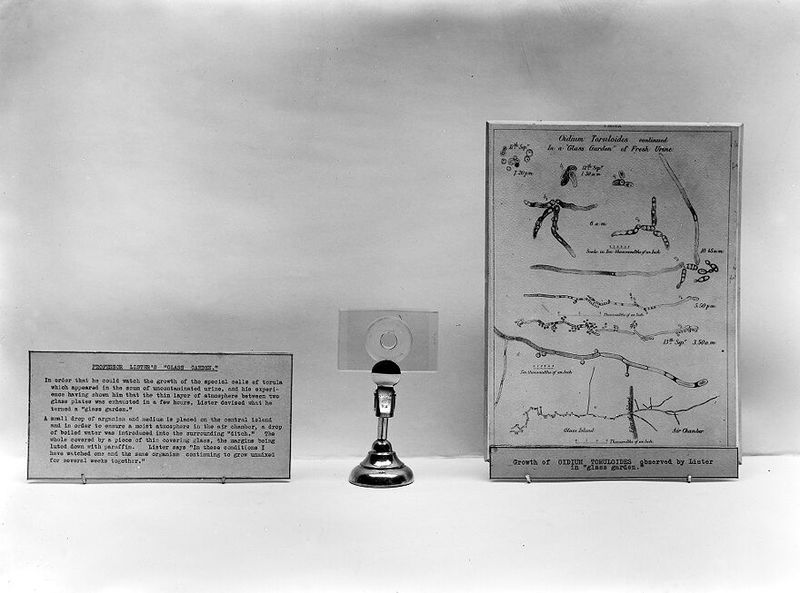 PROFESSOR LISTER'S "GLASS GARDEN."
In order that he could watch the growth of the special cells of torula
which appeared in the scum of uncontaminated urine, and his experi-
ence having shown him that the thin layer of atmosphere between two
glass plates was exhausted in a few hours, Lister devised what he
termed a "glass garden."
A small drop of organism and medium is placed on the central island
and in order to ensure a moist atmosphere in the air chamber, a drop
of boiled water was introduced into the surrounding "ditch." The
whole covered by a piece of thin covering glass, the margins being
luted down with paraffin. Lister says "In these conditions I
have watched one and the same organism continuing to grow unmixed
for several weeks together."
Oidium Toruloides continued
In a "Glass Garden" of Fresh Urine
11th Sepr.
7.20 p.m.
12th Sepr.
1.30 a.m.
6 a.m.
Scale in Ten-thousandths of an Inch
10.45 a.m.
5.50 p.m.
Thousandths of an Inch
13th Sepr. 3.50 a.m.
Ten-thousandths of an Inch
Glass Island
Air Chamber
Thousandths of an Inch
Growth of OIDIUM TORULOIDES observed by Lister
in "glass garden."